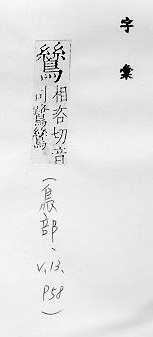 字彙
鷥相咨切音
鷺鷥
(鳥部、v.13, p58)